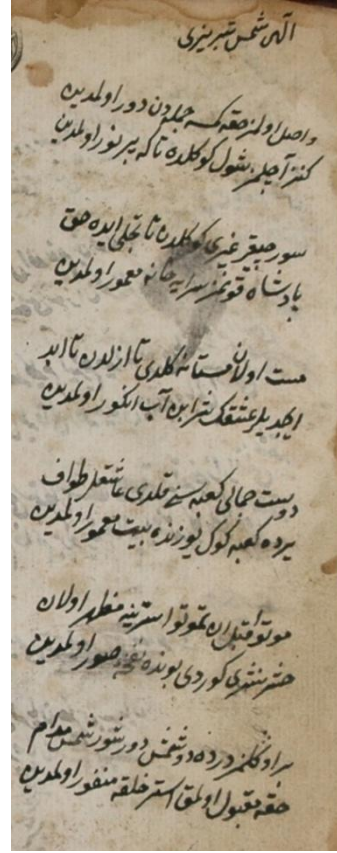 الهی شمس تبریزی
واصل اولمز حقه کمسه جمله دن دور اولمدین
کنز آچلمز شول کوکلده تا که پر نور اولمدین
سور چیقر غیری کوکلدن تا تجلی ایده حق
پادشاه قونمز سرایه خانه معمور اولمدین
مست اولان مستانه کلدی تا ازلدن تا ابد
ایچدیلر عشقک شرابن آب انکور اولمدین
دوست جمالی کعبه سنی قلدی عاشقلر طواف
یرده کعبه کوک یوزنده بیت معمور اولمدین
موتوا قبل ان تموتوا سرینه مظهر اولان
حشر نشری کوردی بونده نفخه صور اولمدین
بر اوکلمز درده دوشمش شمس مدام
حقه مقبول اولمق استر خلقه منفور اولمدین